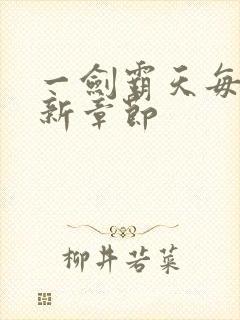 一劍霸天每
新章節
柳井若菜